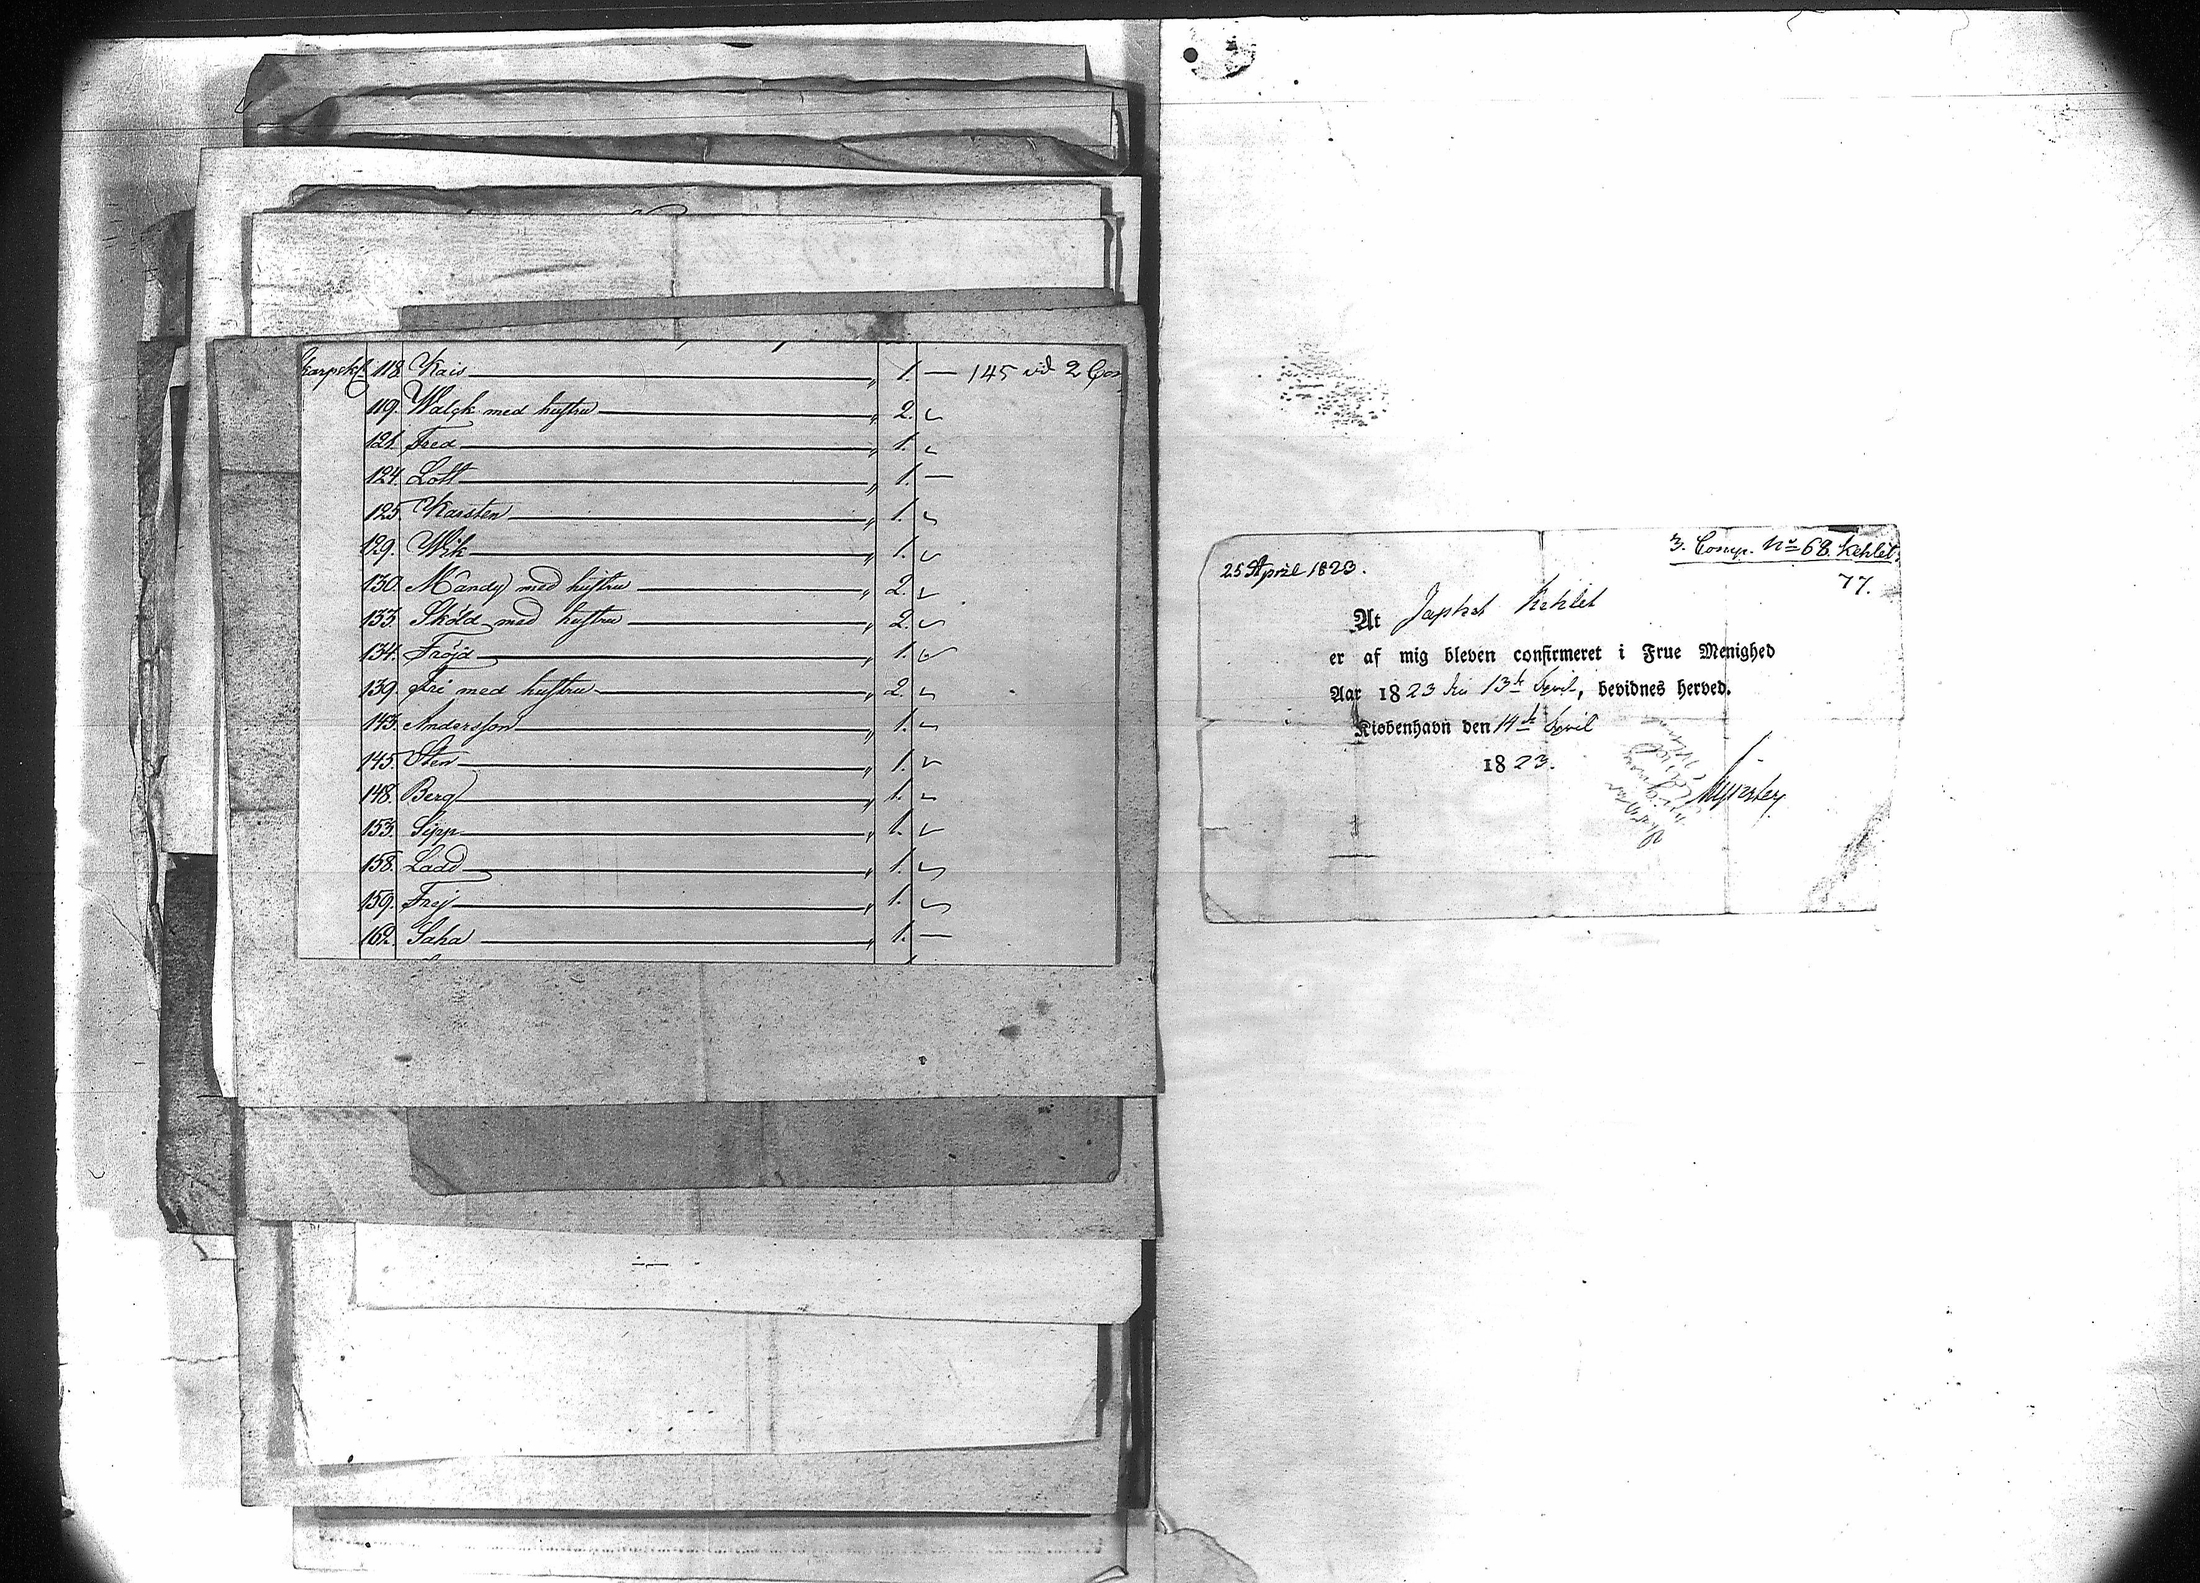 Karpskt 118. Kais " 1. — 145 vid 2 Com
119. Walck med hustru " 2.
121. Fred " 1.
124. Lott " 1. —
125. Karsten " 1.
129. Wik " 1.
130. Mandy med hustru " 2.
133. Sköld med hustru " 2.
134. Fröjd " 1.
139. Fri med hustru " 2.
143. Andersson " 1.
145. Sten " 1.
148. Berg " 1.
153. Sipp " 1.
158. Ladd " 1.
159. Frej " 1.
162. Saha " 1. —
3. Comp. No 68. Kehlet
25 April 1823.
77.
At Japhet Kehlet
er af mig bleven confirmeret i Frue Menighed
Aar 1823 den 13de April, bevidnes herved.
Kiøbenhavn den 14de April
1823.
Mynster